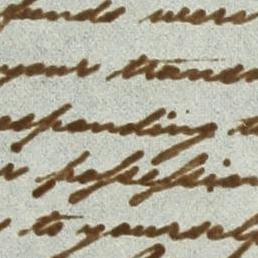 funds were
your trans
esponding t
r possession
to yourself